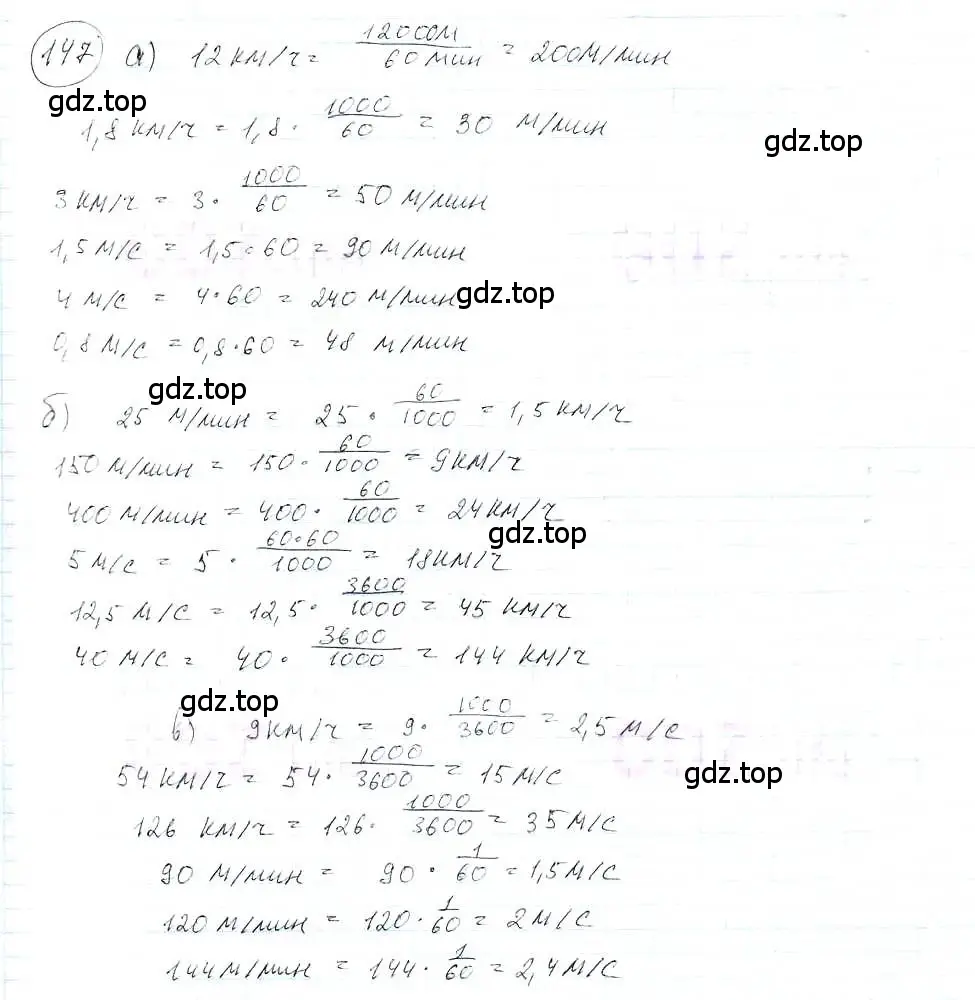 147 а) 12 км/ч = 12000м / 60 мин = 200м/мин
gdz.top
1,8 км/ч = 1,8 · 1000/60 = 30 м/мин
gdz.top
3 км/ч = 3 · 1000/60 = 50 м/мин
1,5 м/с = 1,5 · 60 = 90 м/мин
4 м/с = 4 · 60 = 240 м/мин
gdz.top
0,8 м/с = 0,8 · 60 = 48 м/мин
gdz.top
б) 25 м/мин = 25 · 60/1000 = 1,5 км/ч
150 м/мин = 150 · 60/1000 = 9км/ч
400 м/мин = 400 · 60/1000 = 24 км/ч
gdz.top
5 м/с = 5 · 60·60/1000 = 18км/ч
12,5 м/с = 12,5 · 3600/1000 = 45 км/ч
40 м/с = 40 · 3600/1000 = 144 км/ч
gdz.top
в) 9км/ч = 9 · 1000/3600 = 2,5 м/с
54 км/ч = 54 · 1000/3600 = 15 м/с
gdz.top
126 км/ч = 126 · 1000/3600 = 35 м/с
90 м/мин = 90 · 1/60 = 1,5 м/с
120 м/мин = 120 · 1/60 = 2 м/с
144м/мин = 144 · 1/60 = 2,4 м/с